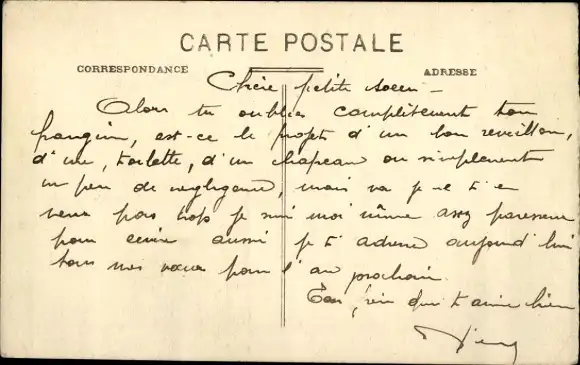 CARTE POSTALE
CORRESPONDANCE
ADRESSE
Chère petite soeur -
Alors tu oublies complètement ton
frangin, est-ce le projet d'un bon reveillon,
d'une, toilette, d'un chapeau ou simplement
un peu de negligence, mais va je ne t'en
veux pas trop je suis moi même assez paresseux
pour ecrire aussi je t'adresse aujourd'hui
tous mes voeux pour l'an prochain.
Ton qui t'aime bien